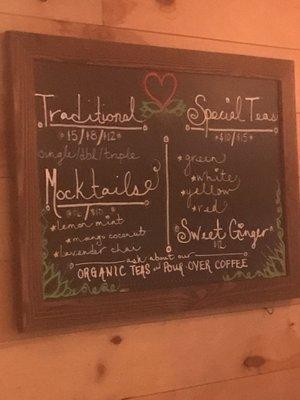 Traditional
$5/$8/$12
single/dbl/triple
Mocktails
lemon mint
mango coconut
lavender chai
Special Teas
$10/$15
green
white
yellow
red
Sweet Ginger
$12
ask about our
ORGANIC TEAS POUR OVER COFFEE